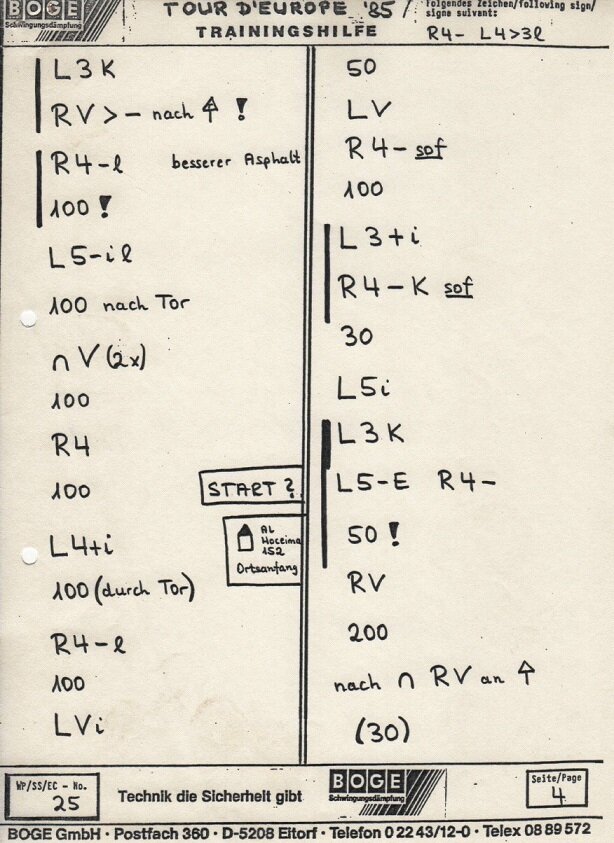 BOGE
Schwingungsdämpfung
TOUR D'EUROPE '85 /
TRAININGSHILFE
folgendes Zeichen/following sign/
signe suivant:
R4- L4>3l
L3K
RV>- nach ↑ !
R4-l besserer Asphalt
100 !
L5-il
100 nach Tor
∩ V (2x)
100
R4
100
START ?
AL
Hoceima
152
Ortsanfang
L4+i
100 (durch Tor)
R4-l
100
LVi
50
LV
R4- sof
100
L3+i
R4-K sof
30
L5i
L3K
L5-E R4-
50 !
RV
200
nach ∩ RV an ↑
(30)
WP/SS/EC - No.
25
Technik die Sicherheit gibt
BOGE
Schwingungsdämpfung
Seite/Page
4
BOGE GmbH · Postfach 360 · D-5208 Eitorf · Telefon 0 22 43/12-0 · Telex 08 89 572